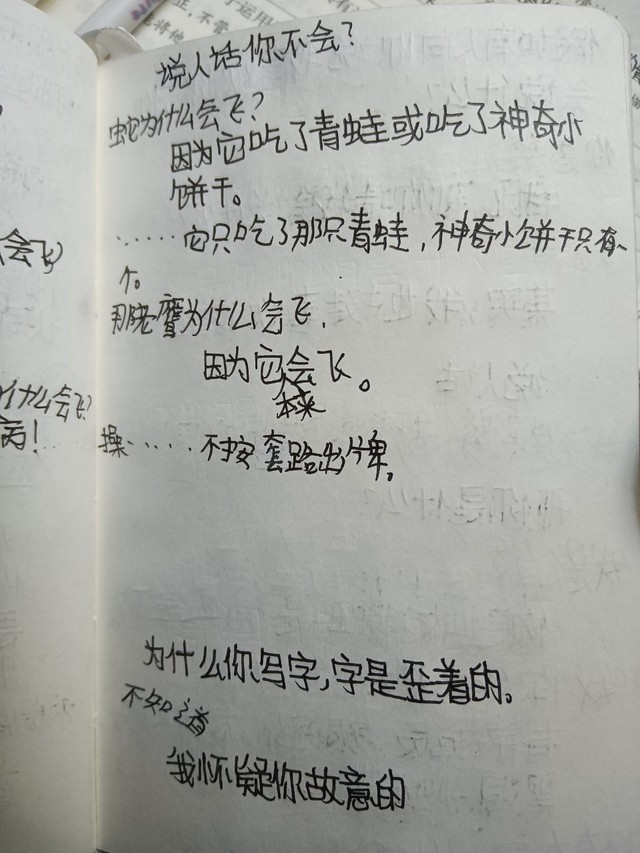 说人话你不会？
蛇为什么会飞？
因为它吃了青蛙或吃了神奇小
饼干。
……它只吃了那只青蛙，神奇小饼干只有一
个。
那老鹰为什么会飞，
因为它会飞。
本来
操……不按套路出牌，
为什么你写字，字是歪着的。
不知道
我怀疑你故意的
会飞）
什么会飞？